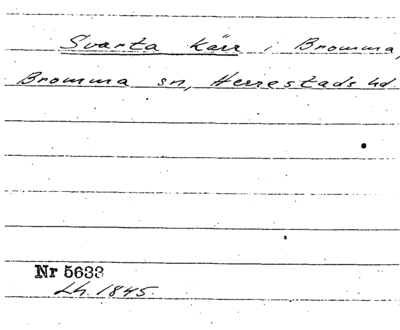 Svarta Kärr i Bromma,
Bromma sn, Herrestads hd.
Nr 5633
Lh. 1845.